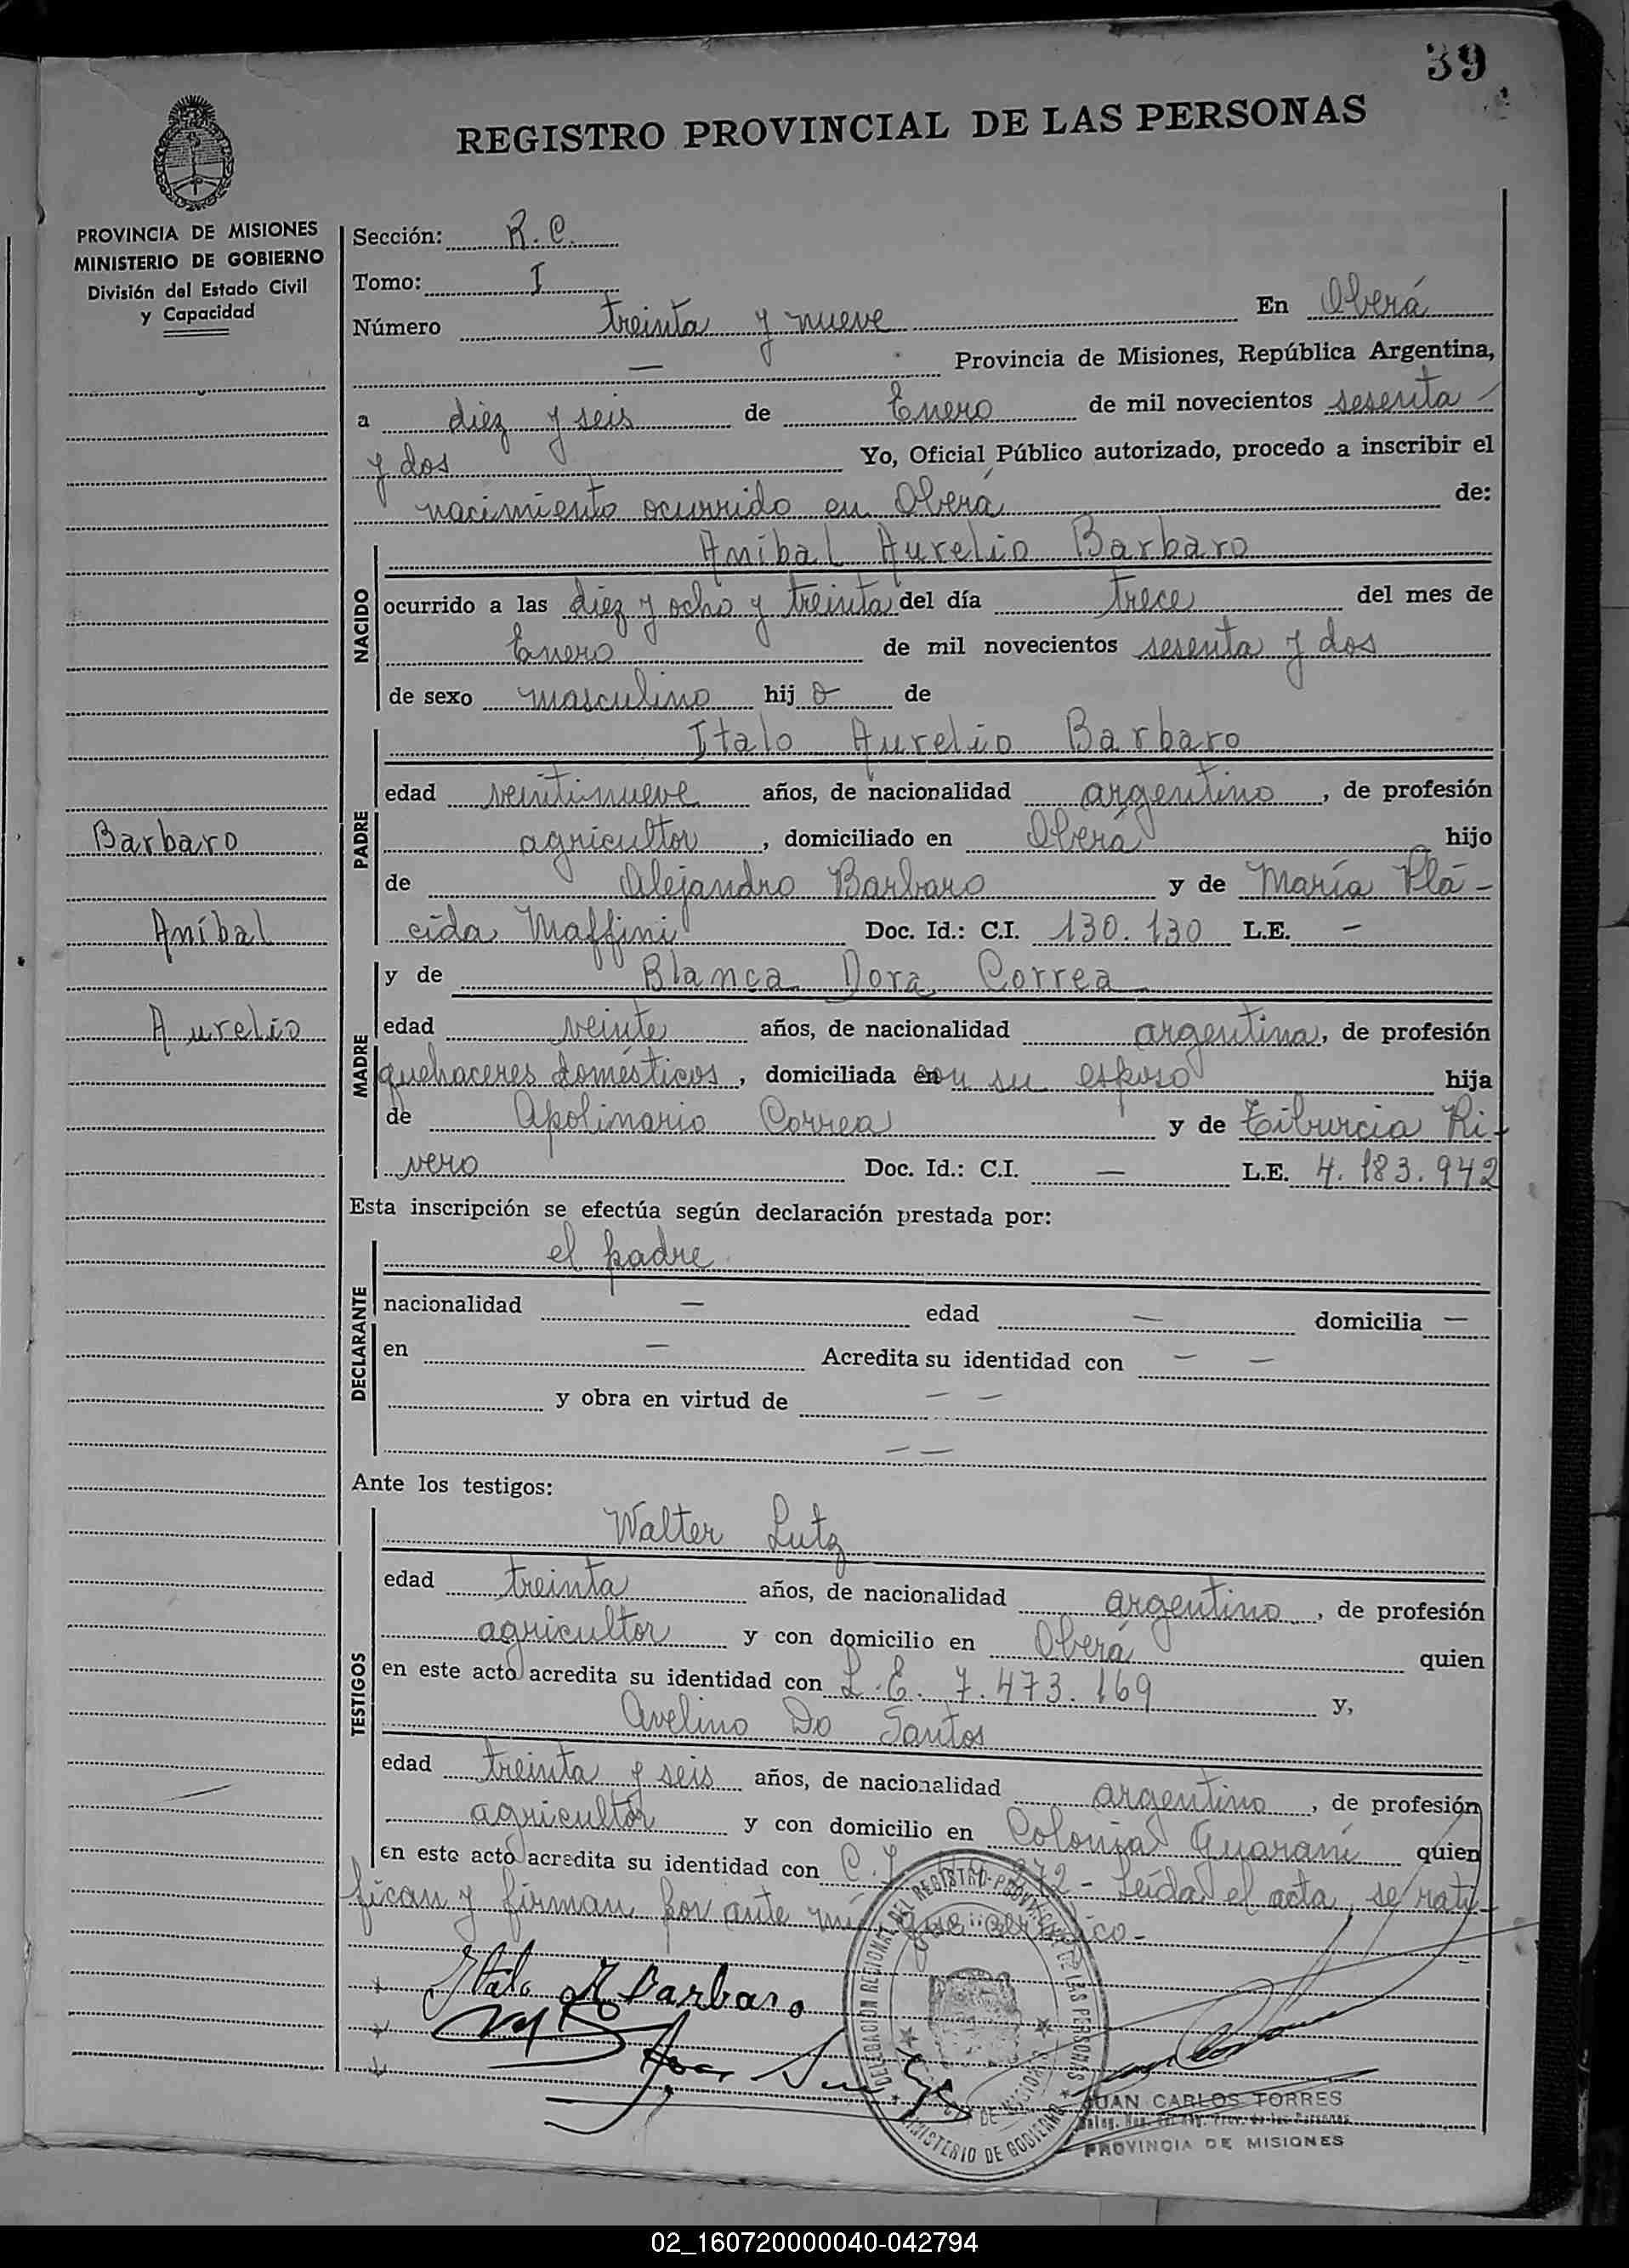 39
REGISTRO PROVINCIAL DE LAS PERSONAS
PROVINCIA DE MISIONES
MINISTERIO DE GOBIERNO
División del Estado Civil
y Capacidad
Barbaro
Aníbal
Aurelio
Sección: R. C.
Tomo: I
Número treinta y nueve En Oberá
— Provincia de Misiones, República Argentina,
a diez y seis de Enero de mil novecientos sesenta
y dos Yo, Oficial Público autorizado, procedo a inscribir el
nacimiento ocurrido en Oberá de:
NACIDO
Aníbal Aurelio Barbaro
ocurrido a las diez y ocho y treinta del día trece del mes de
Enero de mil novecientos sesenta y dos
de sexo masculino hijo de
PADRE
Italo Aurelio Barbaro
edad veintinueve años, de nacionalidad argentino, de profesión
agricultor, domiciliado en Oberá hijo
de Alejandro Barbaro y de María Plá-
cida Maffini Doc. Id.: C.I. 130.130 L.E. —
MADRE
y de Blanca Dora Correa
edad veinte años, de nacionalidad argentina, de profesión
quehaceres domésticos, domiciliada con su esposo hija
de Apolinario Correa y de Tiburcia Ri-
vero Doc. Id.: C.I. — L.E. 4.183.942
Esta inscripción se efectúa según declaración prestada por:
DECLARANTE
el padre
nacionalidad — edad — domicilia —
en — Acredita su identidad con — —
y obra en virtud de — —
— —
Ante los testigos:
TESTIGOS
Walter Lutz
edad treinta años, de nacionalidad argentino, de profesión
agricultor y con domicilio en Oberá quien
en este acto acredita su identidad con L.E. 7.473.169 y,
Avelino Do Santos
edad treinta y seis años, de nacionalidad argentino, de profesión
agricultor y con domicilio en Colonia Guaraní quien
en este acto acredita su identidad con C.I. - Leída el acta, se rati-
fican y firman por ante mí que certifico-
Italo A Barbaro
DELEGACION REGIONAL DEL REGISTRO PROVINCIAL DE LAS PERSONAS
MINISTERIO DE GOBIERNO
JUAN CARLOS TORRES
PROVINCIA DE MISIONES
02_160720000040-042794